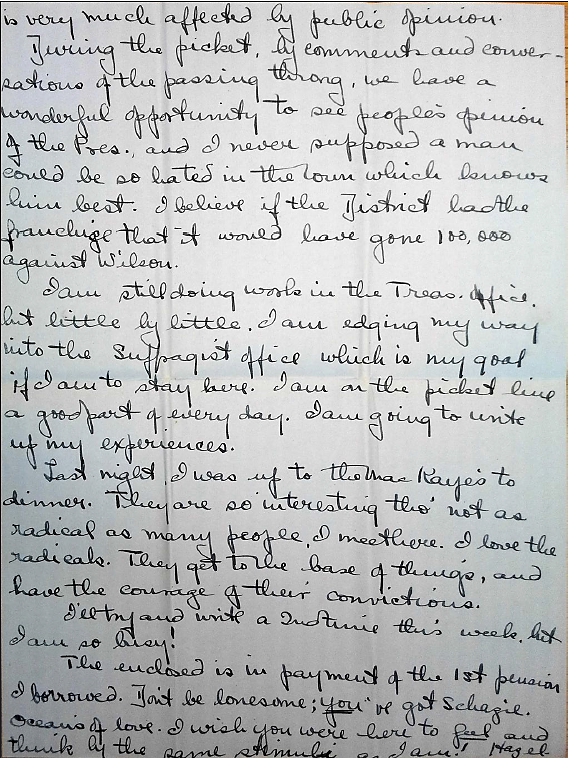 is very much affected by public opinion.
During the picket, by comments and conver-
sations of the passing throng, we have a
wonderful opportunity to see people's opinion
of the Pres., and I never supposed a man
could be so hated in the town which knows
him best. I believe if the District had the
franchise that it would have gone 100,000
against Wilson.
I am still doing work in the Treas. office,
but little by little, I am edging my way
into the Suffragist office which is my goal
if I am to stay here. I am on the picket line
a good part of every day. I am going to write
up my experiences.
Last night, I was up to the Mac Kaye's to
dinner. They are so interesting tho' not as
radical as many people, I meet here. I love the
radicals. They get to the base of things, and
have the courage of their convictions.
I'll try and write a 2nd time this week, but
I am so busy!
The enclosed is in payment of the 1st pension
I borrowed. Don't be lonesome; you've got Schazie.
Oceans of love. I wish you were here to feel and
think by the same stimuli as I am! Hazel